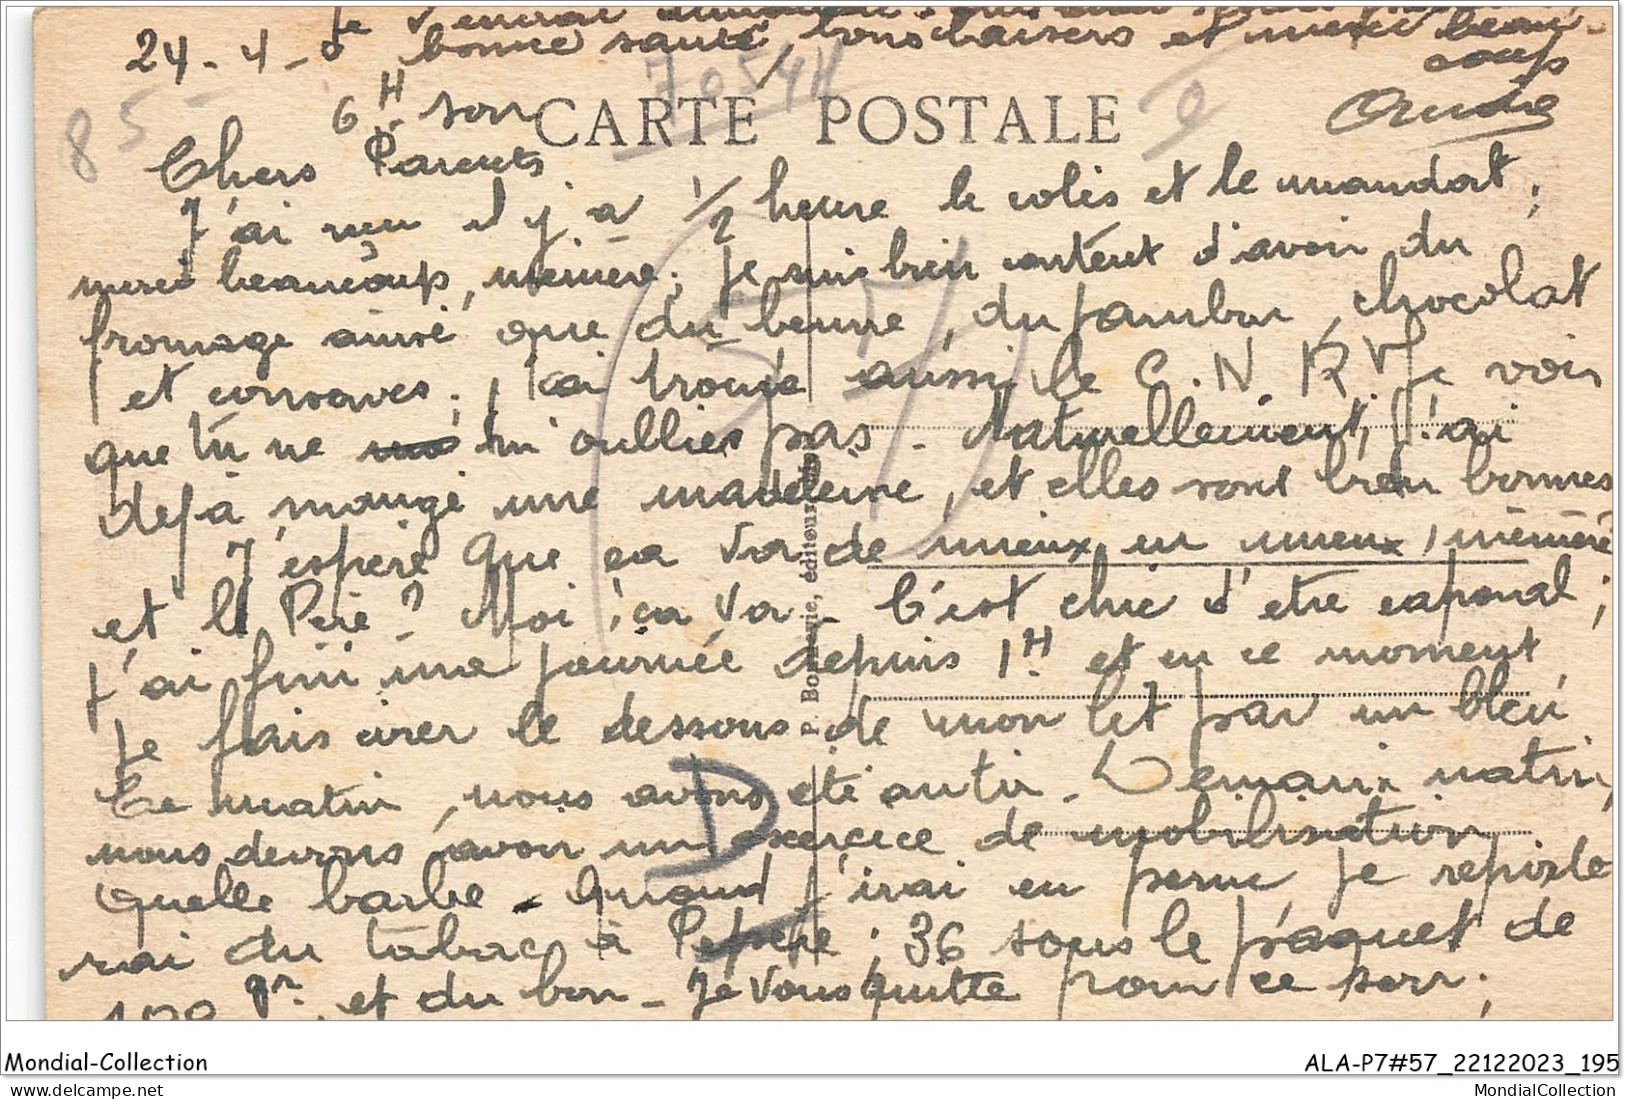 24-4-
Je
bonne santé, bons baisers et merci beau-
coup
André
85-
7054H
6H soir
CARTE POSTALE
Chers Parents
J'ai reçu il y a 1/2 heure le colis et le mandat;
merci beaucoup, mémère; je suis bien content d'avoir du
fromage ainsi que du beurre, du jambon, chocolat
et conserves; j'ai trouvé aussi le C.N.R.F. Je vois
que tu ne m'oublies pas. Naturellement, j'ai
déjà mangé une madeleine, et elles sont bien bonnes
J'espère que ça va de mieux en mieux, mémère
et le Père? Moi, ça va. C'est chic d'être caporal;
j'ai fini ma journée depuis 1H et en ce moment
je fais cirer le dessous de mon lit par un bleu
Ce matin, nous avons été au tir. Demain matin,
nous devons avoir un exercice de mobilisation
Quelle barbe. Quand j'irai en perm, je reposte
rai du tabac à Pépère; 36 sous le paquet de
100 gr. et du bon. Je vous quitte pour ce soir;
P. Bonnenie, éditeur
57
D
Mondial-Collection
ALA-P7#57_22122023_195
MondialCollection